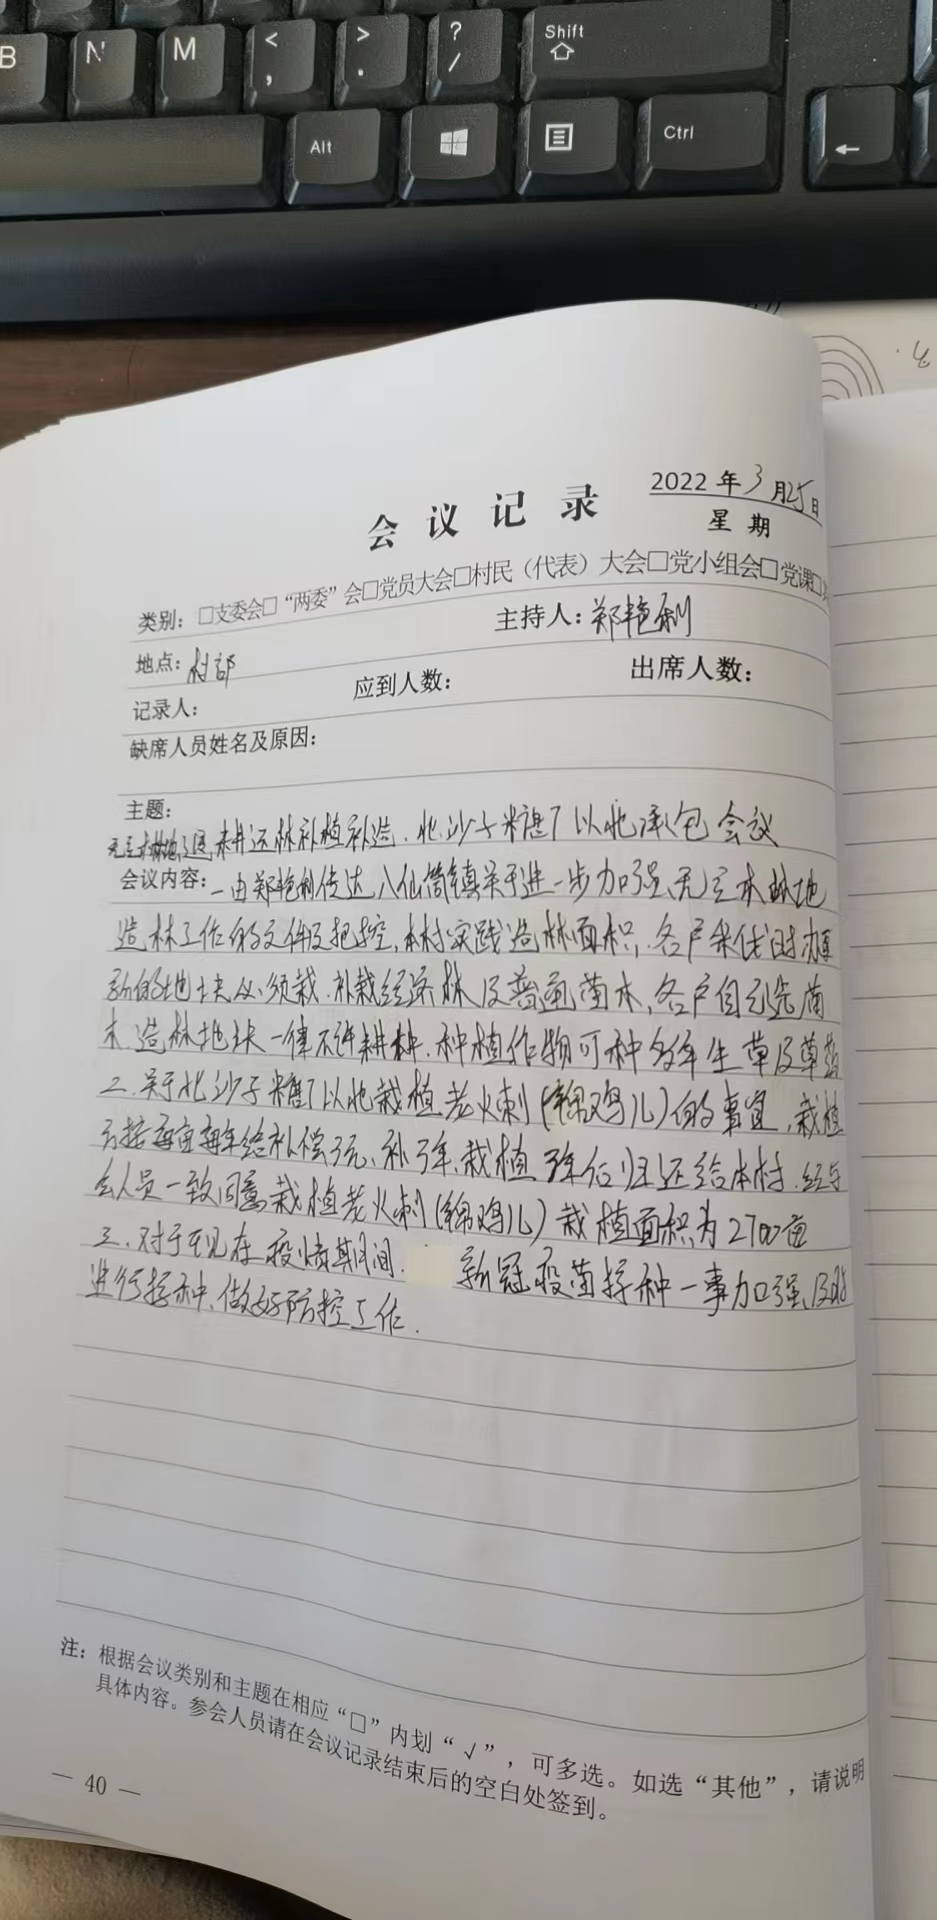 B N M < , > . ? / Shift
Alt Ctrl
会议记录
2022年3月25日
星期
类别：□支委会□“两委”会□党员大会□村民（代表）大会□党小组会□党课□
地点：村部 主持人：郑艳利
记录人： 应到人数： 出席人数：
缺席人员姓名及原因：
主题：
退耕还林补植补造.北沙子 以北承包会议
会议内容：一由郑艳利传达八仙筒镇关于进一步加强无立木林地
造林工作的文件及把控,本村实践造林面积,各户采伐时办
的地块必须栽.补栽经济林及普通苗木,各户自己选苗
木造林地块一律不许耕种.种植作物可种多年生草及草
二.关于北沙子 以北栽植老火刺(锦鸡儿)的事宜,栽植
每亩每年给补偿 元、补 年,栽植 年后归还给本村.经与
会人员一致同意栽植老火刺(锦鸡儿)栽植面积为2700亩
三.对于现在疫情期间. 新冠疫苗接种一事加强,
进行接种、做好防控工作.
注：根据会议类别和主题在相应“□”内划“√”，可多选。如选“其他”，请说明
具体内容。参会人员请在会议记录结束后的空白处签到。
— 40 —